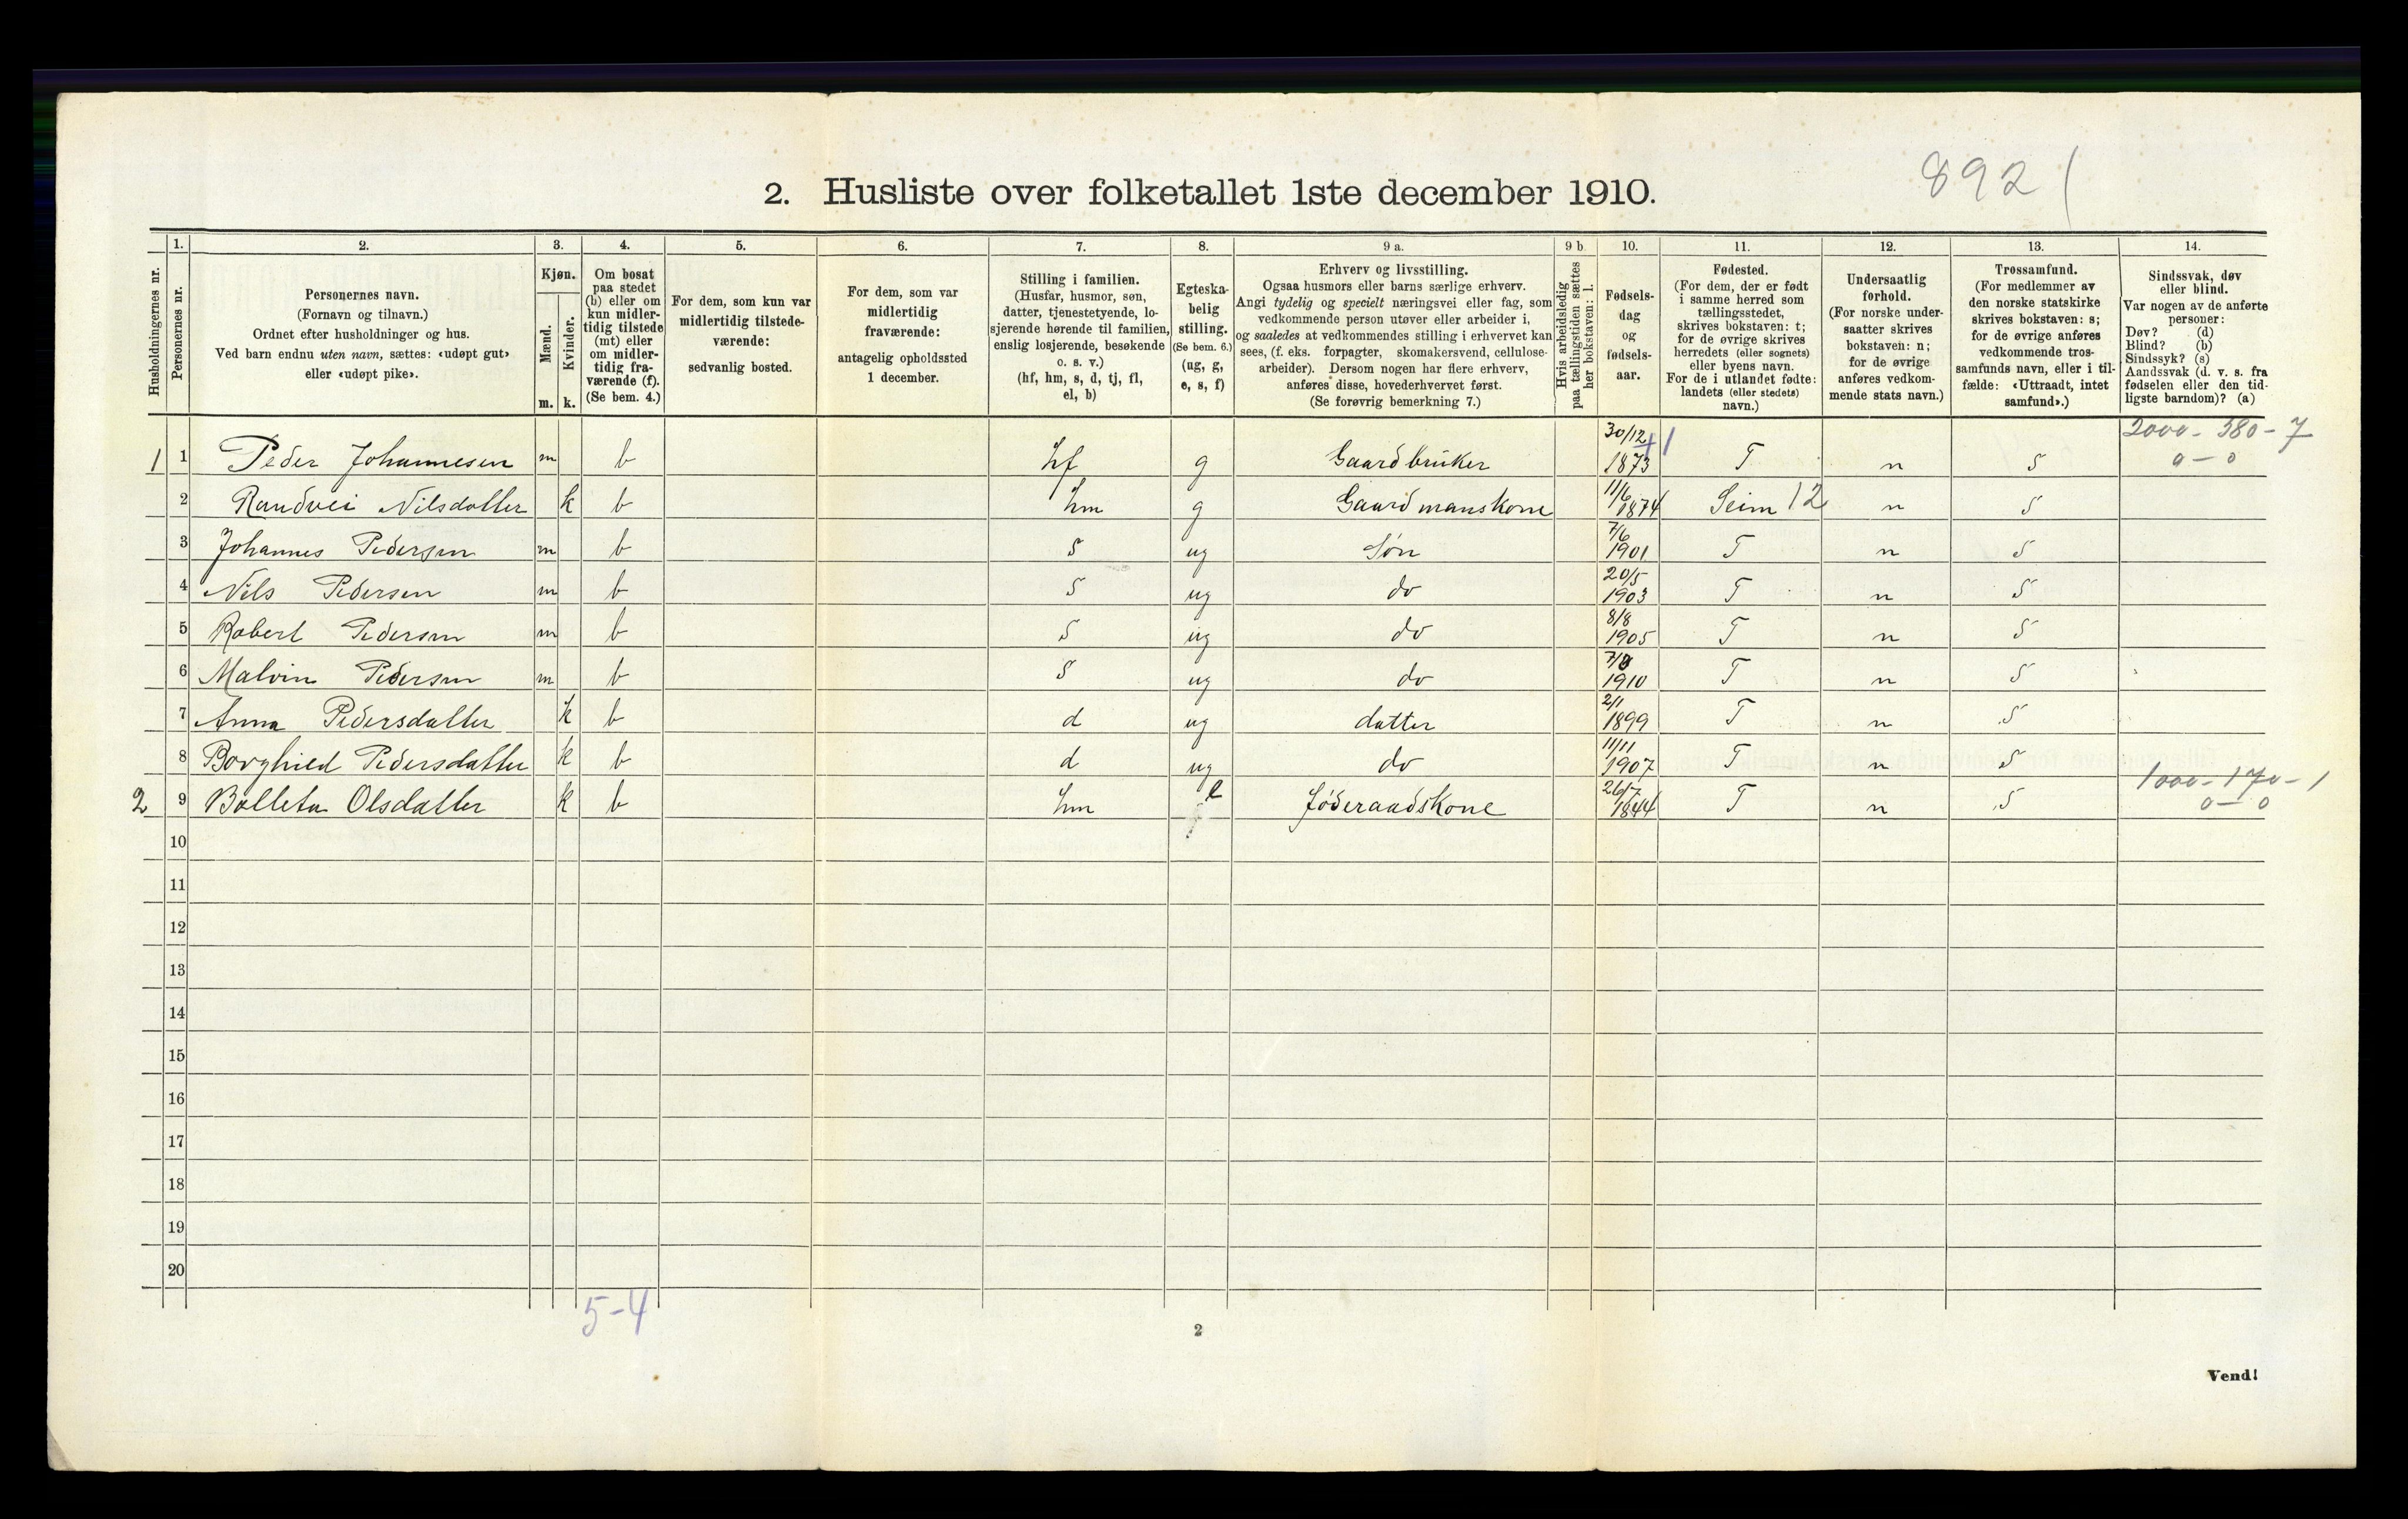 892 (
2. Husliste over folketallet 1ste december 1910.
Husholdningernes nr.
1. Personernes nr.
2. Personernes navn.
(Fornavn og tilnavn.)
Ordnet efter husholdninger og hus.
Ved barn endnu uten navn, sættes: «udøpt gut»
eller «udøpt pike».
3. Kjøn.
Mænd. m.
Kvinder. k.
4. Om bosat
paa stedet
(b) eller om
kun midler-
tidig tilstede
(mt) eller
om midler-
tidig fra-
værende (f).
(Se bem. 4.)
5. For dem, som kun var
midlertidig tilstede-
værende:
sedvanlig bosted.
6. For dem, som var
midlertidig
fraværende:
antagelig opholdssted
1 december.
7. Stilling i familien.
(Husfar, husmor, søn,
datter, tjenestetyende, lo-
sjerende hørende til familien,
enslig losjerende, besøkende
o. s. v.)
(hf, hm, s, d, tj, fl,
el, b)
8. Egteska-
belig
stilling.
(Se bem. 6.)
(ug, g,
e, s, f)
9 a. Erhverv og livsstilling.
Ogsaa husmors eller barns særlige erhverv.
Angi tydelig og specielt næringsvei eller fag, som
vedkommende person utøver eller arbeider i,
og saaledes at vedkommendes stilling i erhvervet kan
sees, (f. eks. forpagter, skomakersvend, cellulose-
arbeider). Dersom nogen har flere erhverv,
anføres disse, hovederhvervet først.
(Se forøvrig bemerkning 7.)
9 b Hvis arbeidsledig
paa tællingstiden sættes
her bokstaven: l.
10. Fødsels-
dag
og
fødsels-
aar.
11. Fødested.
(For dem, der er født
i samme herred som
tællingsstedet,
skrives bokstaven: t;
for de øvrige skrives
herredets (eller sognets)
eller byens navn.
For de i utlandet fødte:
landets (eller stedets)
navn.)
12. Undersaatlig
forhold.
(For norske under-
saatter skrives
bokstaven: n;
for de øvrige
anføres vedkom-
mende stats navn.)
13. Trossamfund.
(For medlemmer av
den norske statskirke
skrives bokstaven: s;
for de øvrige anføres
vedkommende tros-
samfunds navn, eller i til-
fælde: «Uttraadt, intet
samfund».)
14. Sindssvak, døv
eller blind.
Var nogen av de anførte
personer:
Døv? (d)
Blind? (b)
Sindssyk? (s)
Aandssvak (d. v. s. fra
fødselen eller den tid-
ligste barndom)? (a)
1 1 Peder Johannesen m b hf g Gaardbruker 30/12 1873 T n S 2000 - 580 - 7
0 - 0
2 Randvei Nilsdatter k b hm g Gaardmanskone 11/6 1874 Seim 12 n S
3 Johannes Pedersen m b S ug Søn 7/6 1901 T n S
4 Nils Pedersen m b S ug do 20/5 1903 T n S
5 Robert Pedersen m b S ug do 8/8 1905 T n S
6 Malvin Pedersen m b S ug do 1910 T n S
7 Anna Pedersdatter k b d ug datter 2/1 1899 T n S
8 Borghied Pedersdatter k b d ug do 11/11 1907 T n S
2 9 Bolleta Olsdatter k b hm e føderaadskone 26/7 1844 T n S 1000 - 170 - 1
0 - 0
10
11
12
13
14
15
16
17
18
19
20
5-4
2
Vend!